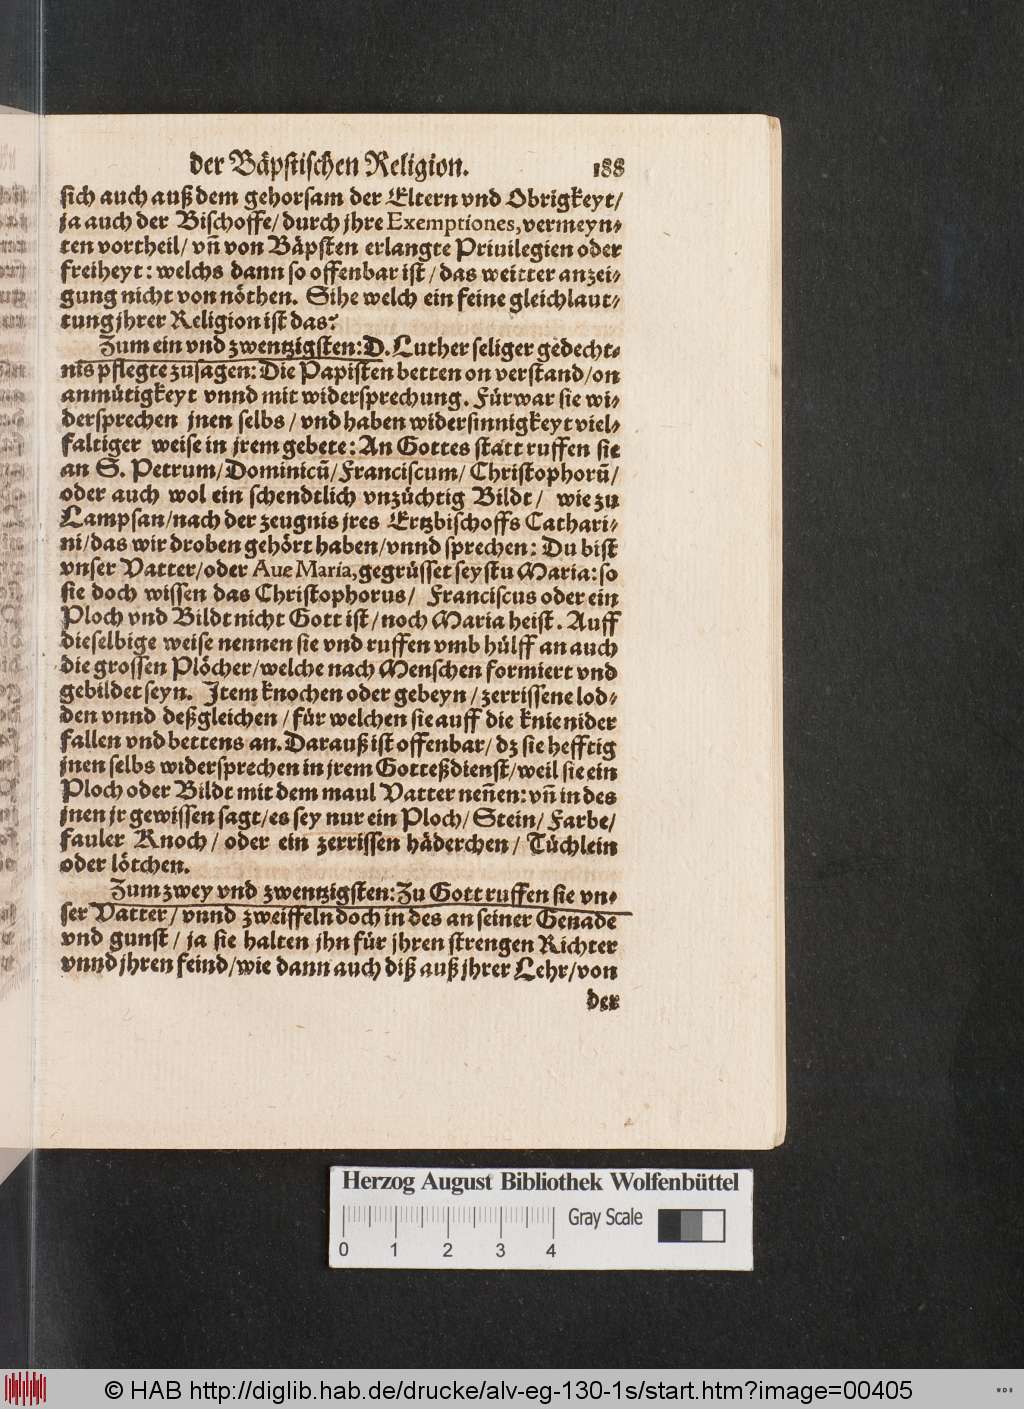 der Bäpstischen Religion. 188
sich auch auß dem gehorsam der Eltern vnd Obrigkeyt/
ja auch der Bischoffe/ durch jhre Exemptiones, vermeyn-
ten vortheil/ vn̄ von Bäpsten erlangte Priuilegien oder
freiheyt: welchs dann so offenbar ist / das weitter anzei-
gung nicht von nöthen. Sihe welch ein feine gleichlaut-
tung jhrer Religion ist das?
Zum ein vnd zwentzigsten: D. Luther seliger gedecht-
nis pflegte zusagen: Die Papisten betten on verstand/ on
anmütigkeyt vnnd mit widersprechung. Fürwar sie wi-
dersprechen jnen selbs / vnd haben widersinnigkeyt viel-
faltiger weise in jrem gebete: An Gottes statt ruffen sie
an S. Petrum/ Dominicū/ Franciscum/ Christophorū/
oder auch wol ein schendtlich vnzüchtig Bildt / wie zu
Lampsan/ nach der zeugnis jres Ertzbischoffs Cathari-
ni/ das wir droben gehört haben/ vnnd sprechen: Du bist
vnser Vatter/ oder Aue Maria, gegrüsset seystu Maria: so
sie doch wissen das Christophorus/ Franciscus oder ein
Ploch vnd Bildt nicht Gott ist/ noch Maria heist. Auff
dieselbige weise nennen sie vnd ruffen vmb hülff an auch
die grossen Plöcher/ welche nach Menschen formiert vnd
gebildet seyn. Jtem knochen oder gebeyn / zerrissene lod-
den vnnd deßgleichen / für welchen sie auff die knie nider
fallen vnd bettens an. Darauß ist offenbar/ dz sie hefftig
jnen selbs widersprechen in jrem Gotteßdienst/ weil sie ein
Ploch oder Bildt mit dem maul Vatter nen̄en: vn̄ in des
jnen jr gewissen sagt/ es sey nur ein Ploch/ Stein/ Farbe/
fauler Knoch / oder ein zerrissen häderchen / Tüchlein
oder lötchen.
Zum zwey vnd zwentzigsten: Zu Gott ruffen sie vn-
ser Vatter/ vnnd zweiffeln doch in des an seiner Genade
vnd gunst / ja sie halten jhn für jhren strengen Richter
vnnd jhren feind/ wie dann auch diß auß jhrer Lehr/ von
der
Herzog August Bibliothek Wolfenbüttel
Gray Scale
0 1 2 3 4
© HAB http://diglib.hab.de/drucke/alv-eg-130-1s/start.htm?image=00405